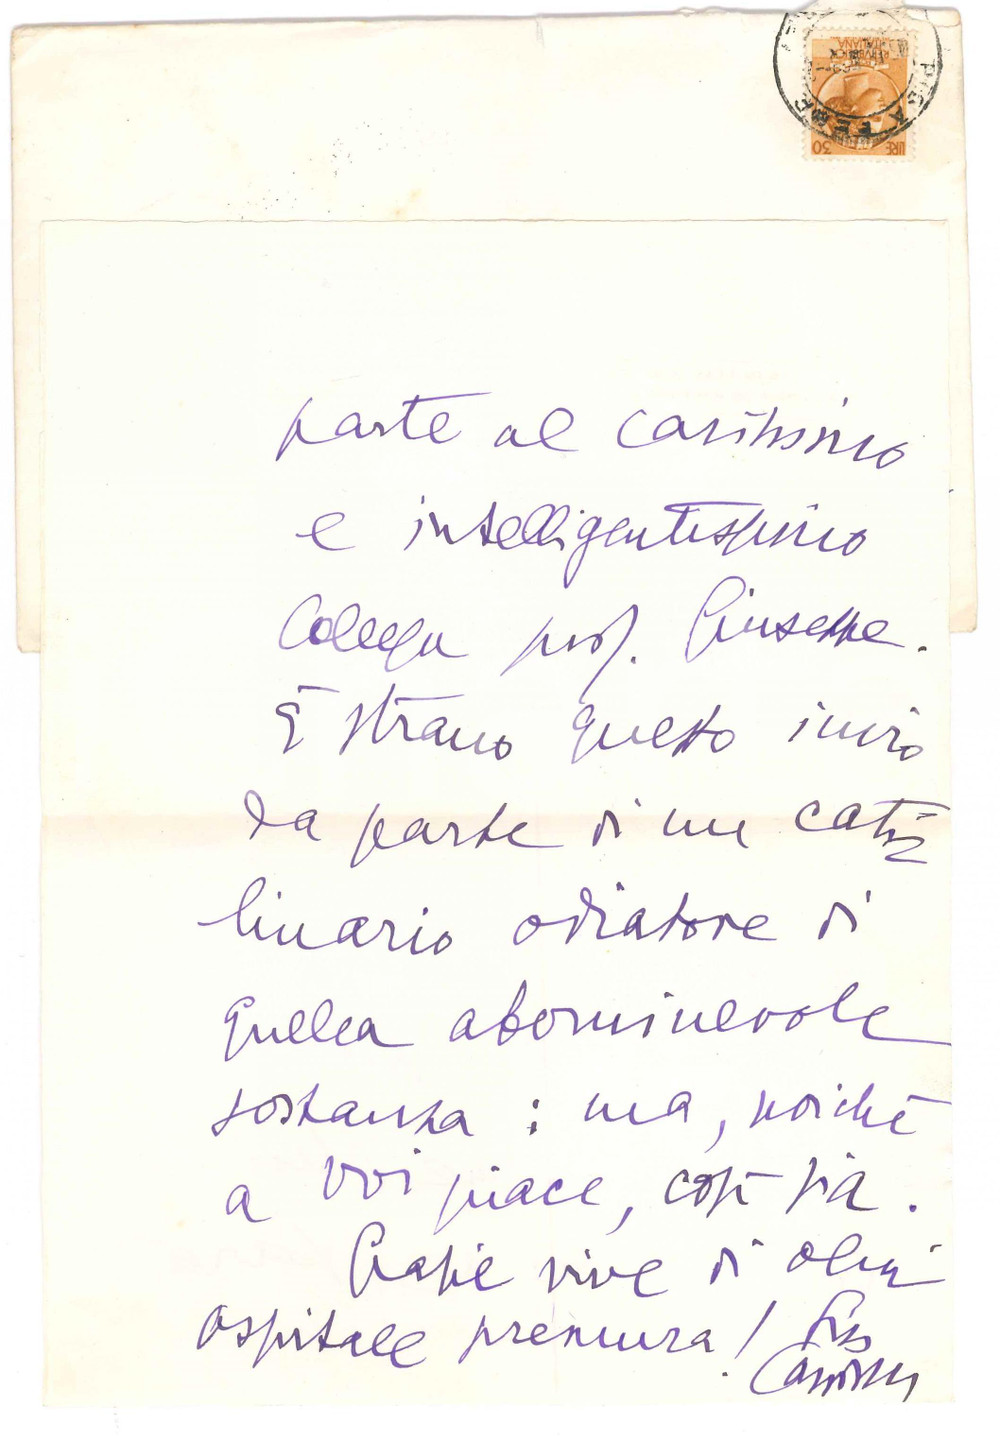 LIRE 30
REPUBBLICA ITALIANA
parte al carissimo
e intelligentissimo
Collega prof. Giuseppe.
È strano questo invio
da parte di un cati-
linario odiatore di
quella abominevole
sostanza : ma, poiché
a voi piace, così sia.
Grazie vive di ogni
ospitale premura!